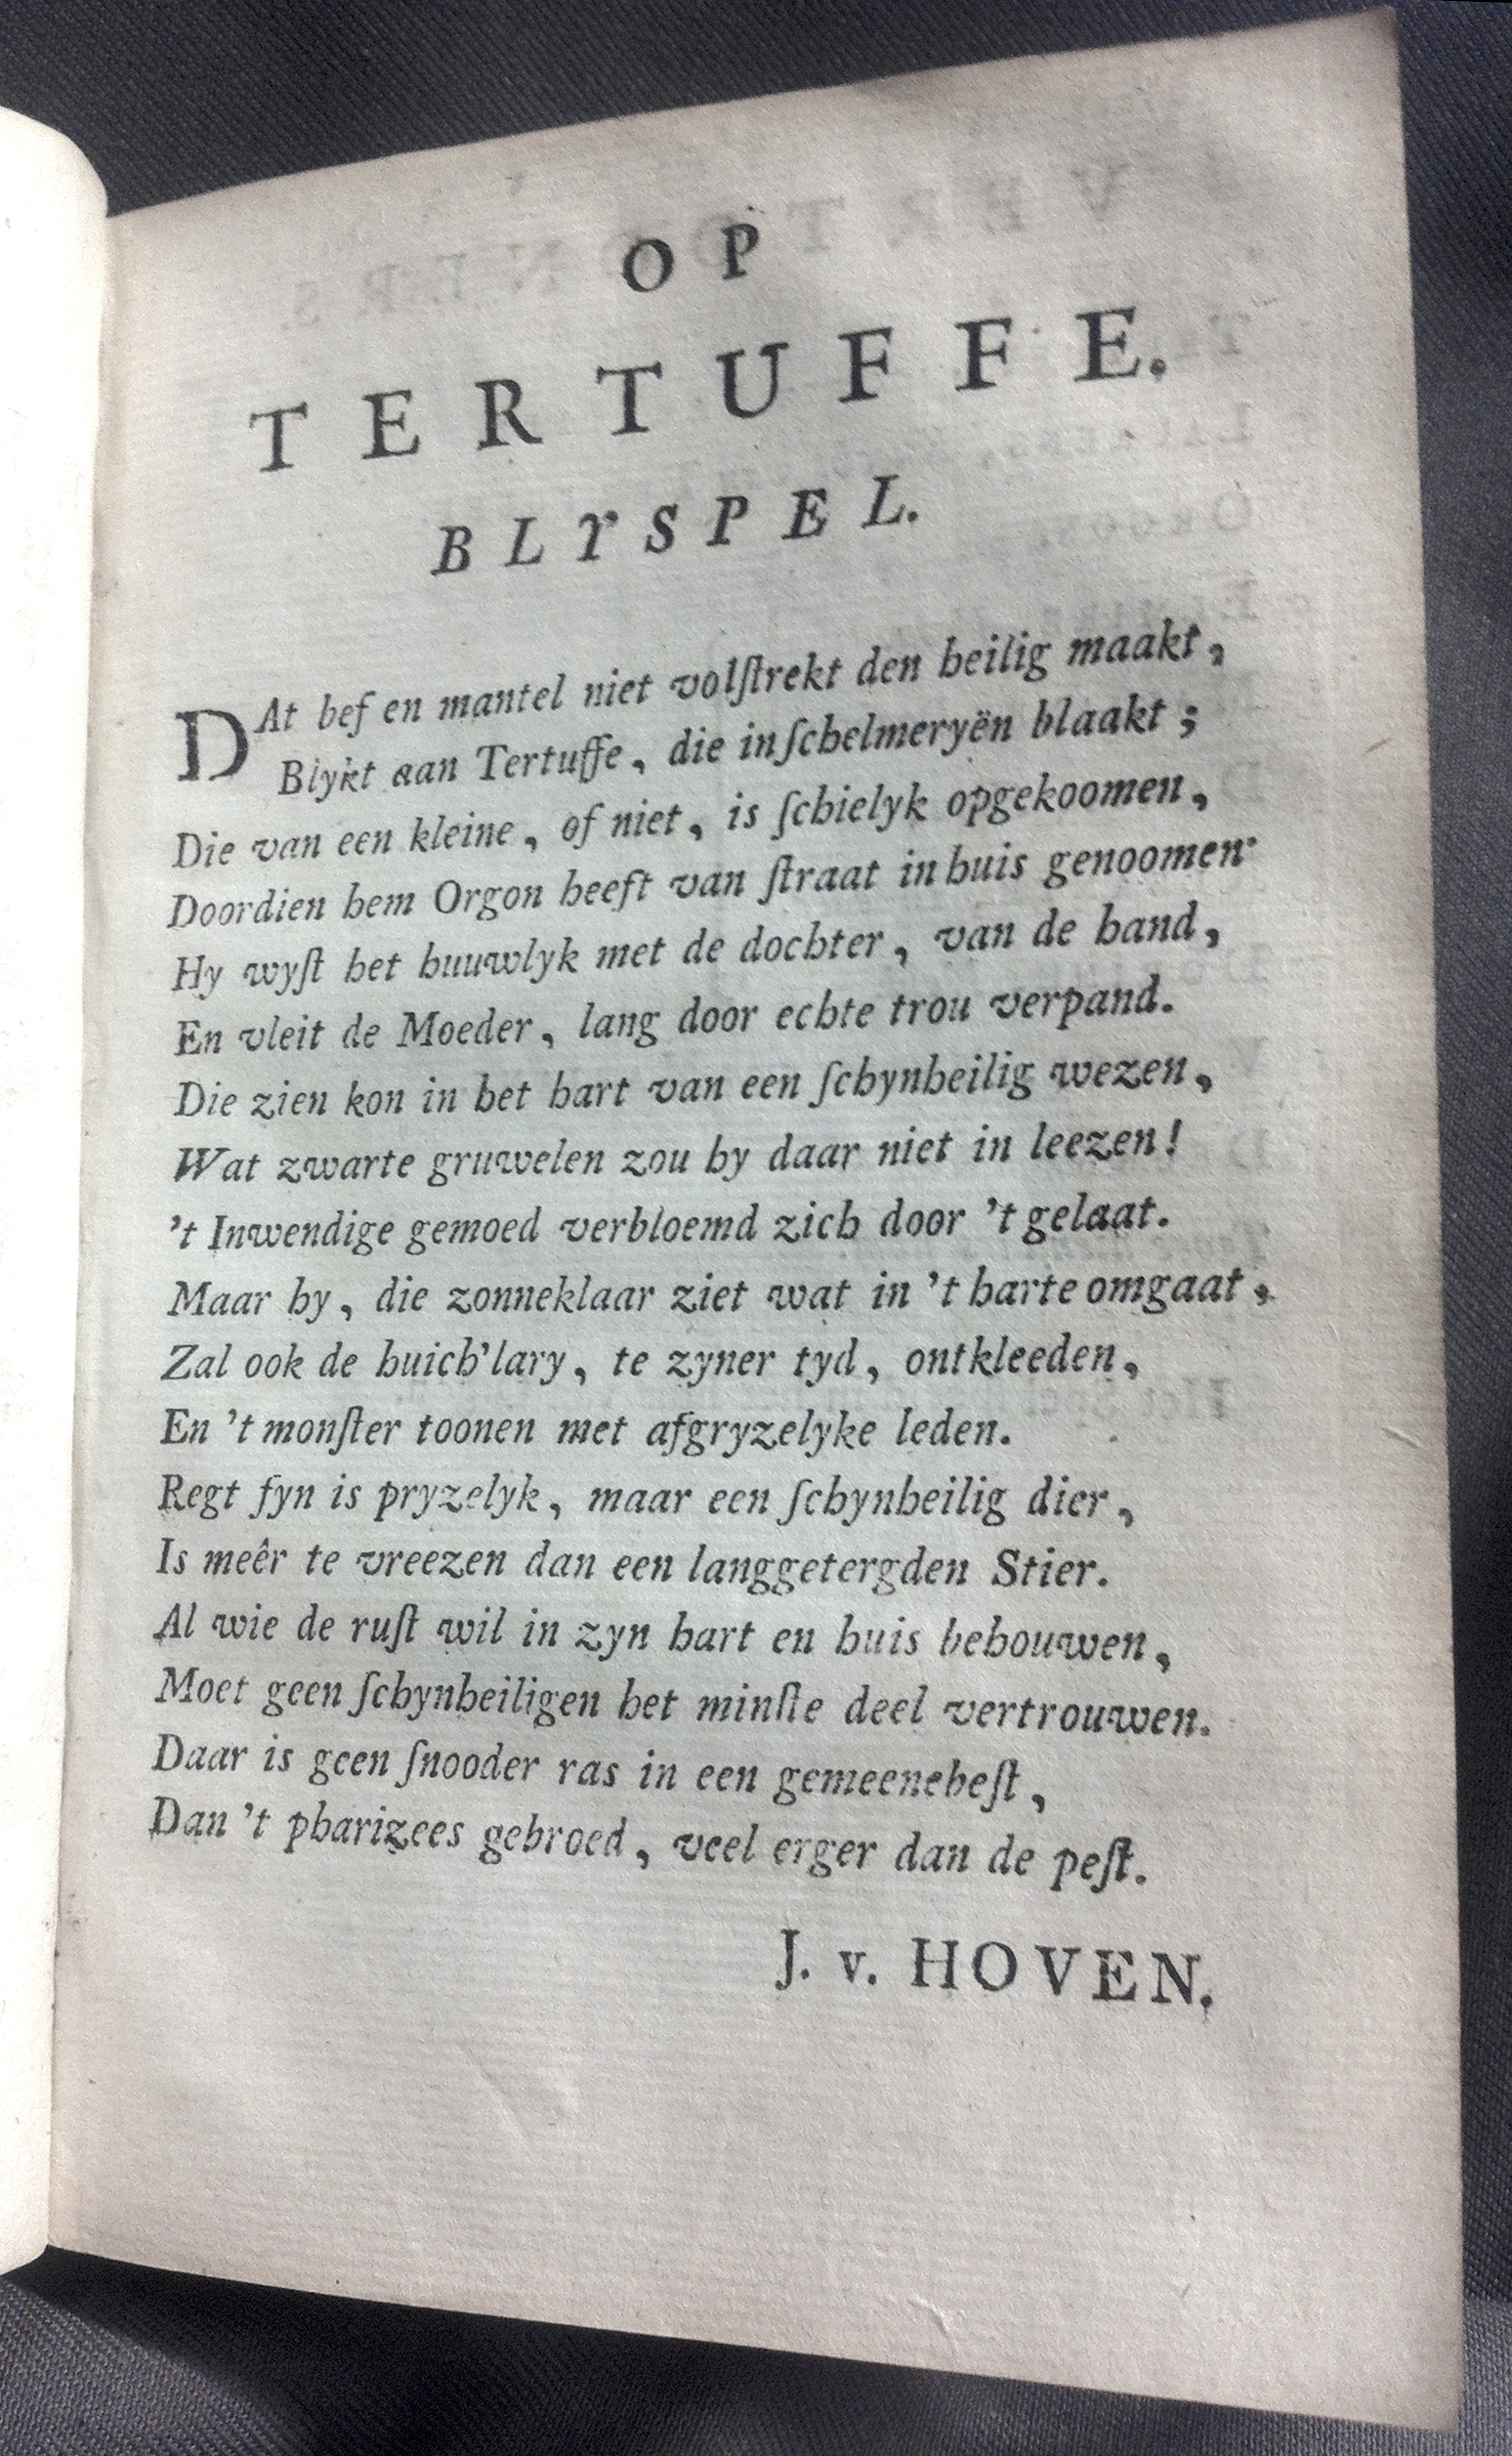 OP
TERTUFFE.
BLYSPEL.
DAt bef en mantel niet volſtrekt den heilig maakt,
Blykt aan Tertuffe, die in ſchelmeryën blaakt;
Die van een kleine, of niet, is ſchielyk opgekoomen,
Doordien hem Orgon heeft van ſtraat in huis genoomen
Hy wyſt het huuwlyk met de dochter, van de hand,
En vleit de Moeder, lang door echte trou verpand.
Die zien kon in het hart van een ſchynheilig wezen,
Wat zwarte gruwelen zou hy daar niet in leezen!
't Inwendige gemoed verbloemd zich door 't gelaat.
Maar hy, die zonneklaar ziet wat in 't harte omgaat,
Zal ook de huich'lary, te zyner tyd, ontkleeden,
En 't monſter toonen met afgryzelyke leden.
Regt fyn is pryzelyk, maar een ſchynheilig dier,
Is meêr te vreezen dan een langgetergden Stier.
Al wie de ruſt wil in zyn hart en huis behouwen,
Moet geen ſchynheiligen het minſte deel vertrouwen.
Daar is geen ſnooder ras in een gemeenebeſt,
Dan 't pharizees gebroed, veel erger dan de peſt.
J. v. HOVEN.